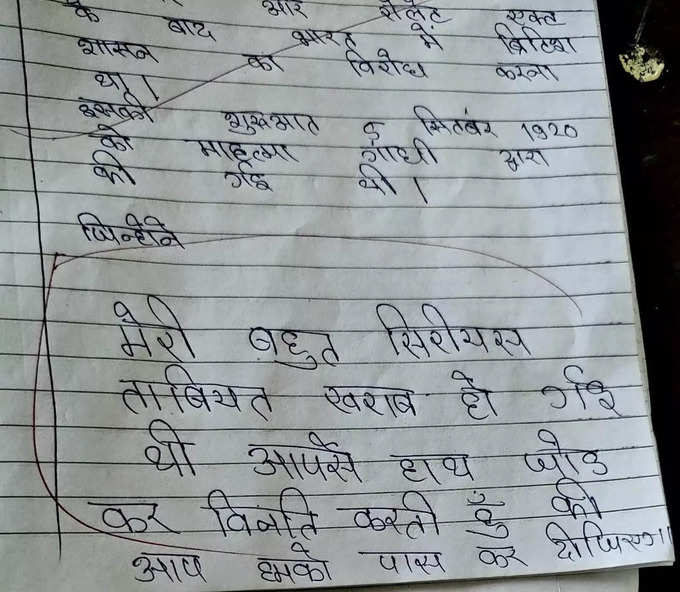 के बाद और रोलेट एक्ट
शासन का भारत में ब्रिटिश
था। विरोध करना
इसकी शुरुआत 5 सितंबर 1920
को माहत्मा गांधी द्वारा
की गई थी।
जिन्होंने
मेरी बहुत सिरीयस
ताबियत खराब हो गई
थी आपसे हाथ जोड
कर विनति करती हुँ की
आप हमको पास कर दीजिएगा